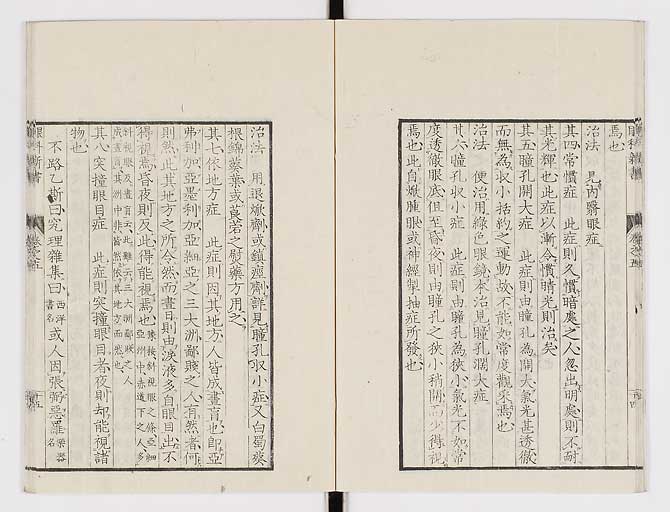 焉也
治法　見内翳眼症
其四常慣症　此症則久慣暗處之人忽出明處則不耐
其光輝也此症以漸令慣晴光則治矣
其五瞳孔開大症　此症則由瞳孔為開大氣光甚透徹
而無為収小括約之運動故不能如常度觀來焉也
治法　便治用綠色眼鏡本治見瞳孔濶大症
其六瞳孔収小症　此症則由瞳孔為狹小氣光不如常
度透徹眼底但至昏夜則由瞳孔之狹小稍開而少得視
焉也此自焮腫眼或神經製抽症所發也
治法　用退焮劑或鎮痙劑詳見瞳孔収小症又白蜀葵
根錦葵葉或莨菪之熨藥方用之
其七依地方症　此症則因其地方人皆成晝盲也即亞
弗利加亞墨利加亞細亞之三大洲鄙賤之人有然者何
則然此其地方之所令然而晝日則由淚液多自眼目出不
得視焉昏夜則及此得能視焉也
亞洲中赤道下之人多
其八突撞眼目症　此症則突撞眼目者夜則却能視諸
物也
不路乙斯曰究理雜集曰西洋書名或人因張弻惡羅樂器名
眼科新書